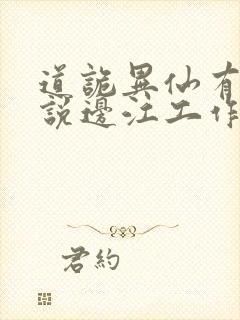 道詭異仙有
說邊江工作
君約